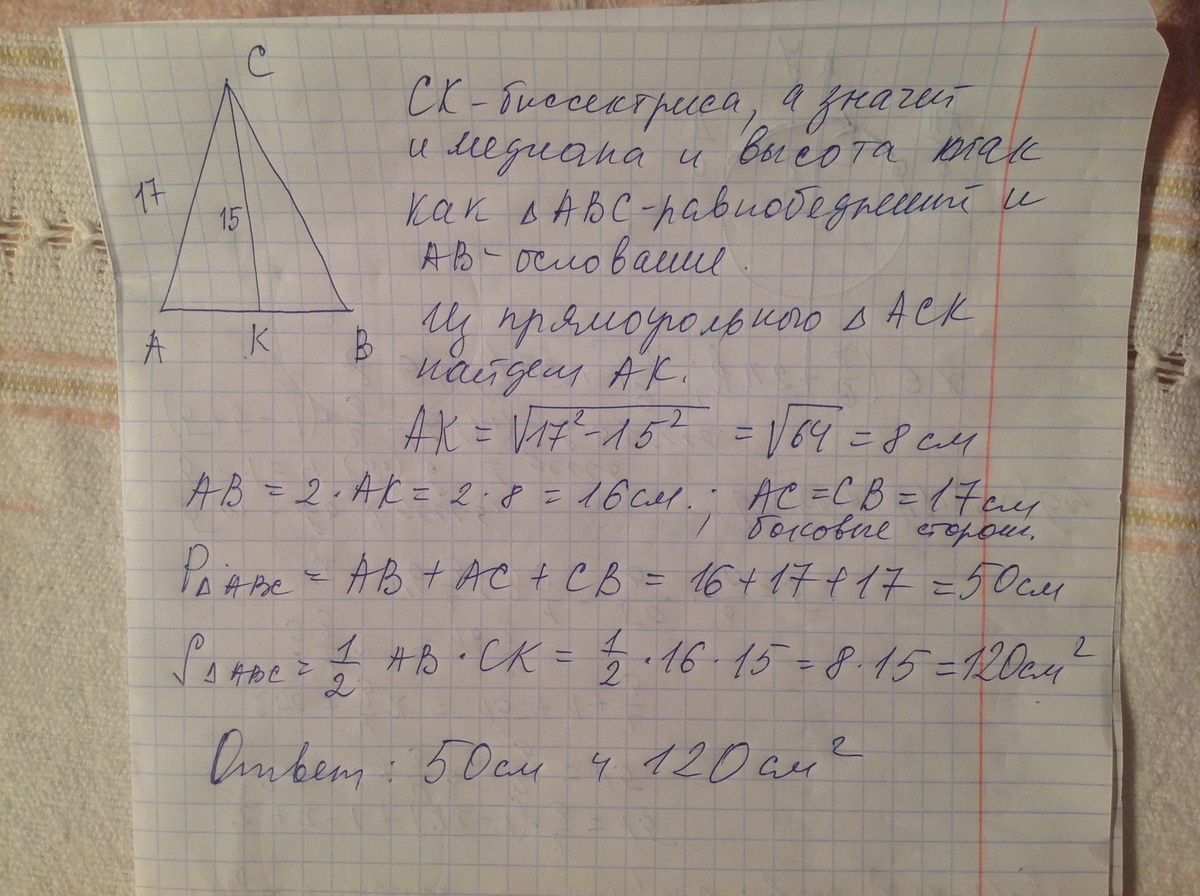 C
17
15
A K B
СК - биссектриса, а значит
и медиана и высота так
как △ABC - равнобедренный и
AB - основание.
Из прямоугольного △ ACK
найдем AK.
AK = √17² - 15² = √64 = 8 см
AB = 2 · AK = 2 · 8 = 16 см. ; AC = CB = 17 см
боковые сторон.
P△ABC = AB + AC + CB = 16 + 17 + 17 = 50 см
S△ABC = 1/2 AB · CK = 1/2 · 16 · 15 = 8 · 15 = 120 см²
Ответ : 50 см и 120 см²